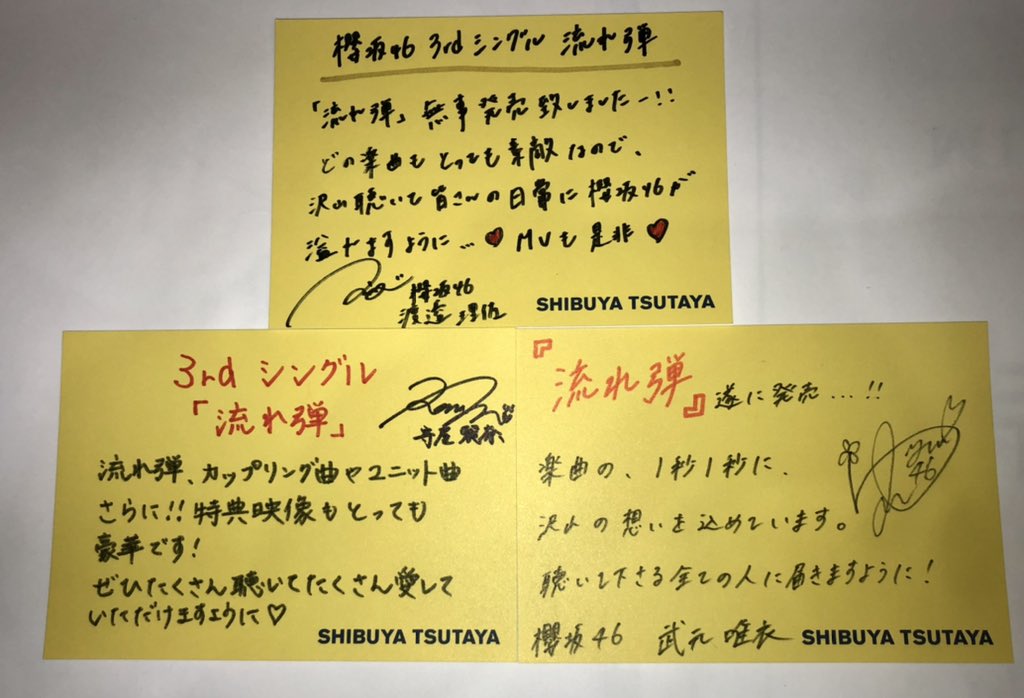 櫻坂46 3rd シングル 流れ弾
「流れ弾」無事発売致しましたー!!
どの楽曲もとっても素敵なので、
沢山聴いて皆さんの日常に櫻坂46が
溢れますように…♥ MVも是非♥
櫻坂46
渡邉理佐
SHIBUYA TSUTAYA
3rd シングル
「流れ弾」
守屋麗奈
流れ弾、カップリング曲やユニット曲
さらに!!特典映像もとっても
豪華です!
ぜひたくさん聴いてたくさん愛して
いただけますように♡
SHIBUYA TSUTAYA
『流れ弾』遂に発売…!!
楽曲の、1秒1秒に、
沢山の想いを込めています。
聴いて下さる全ての人に届きますように!
櫻坂46 武元唯衣
SHIBUYA TSUTAYA